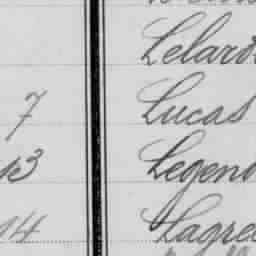 Lelard
7 Lucas
13 Legend
14 Lagre